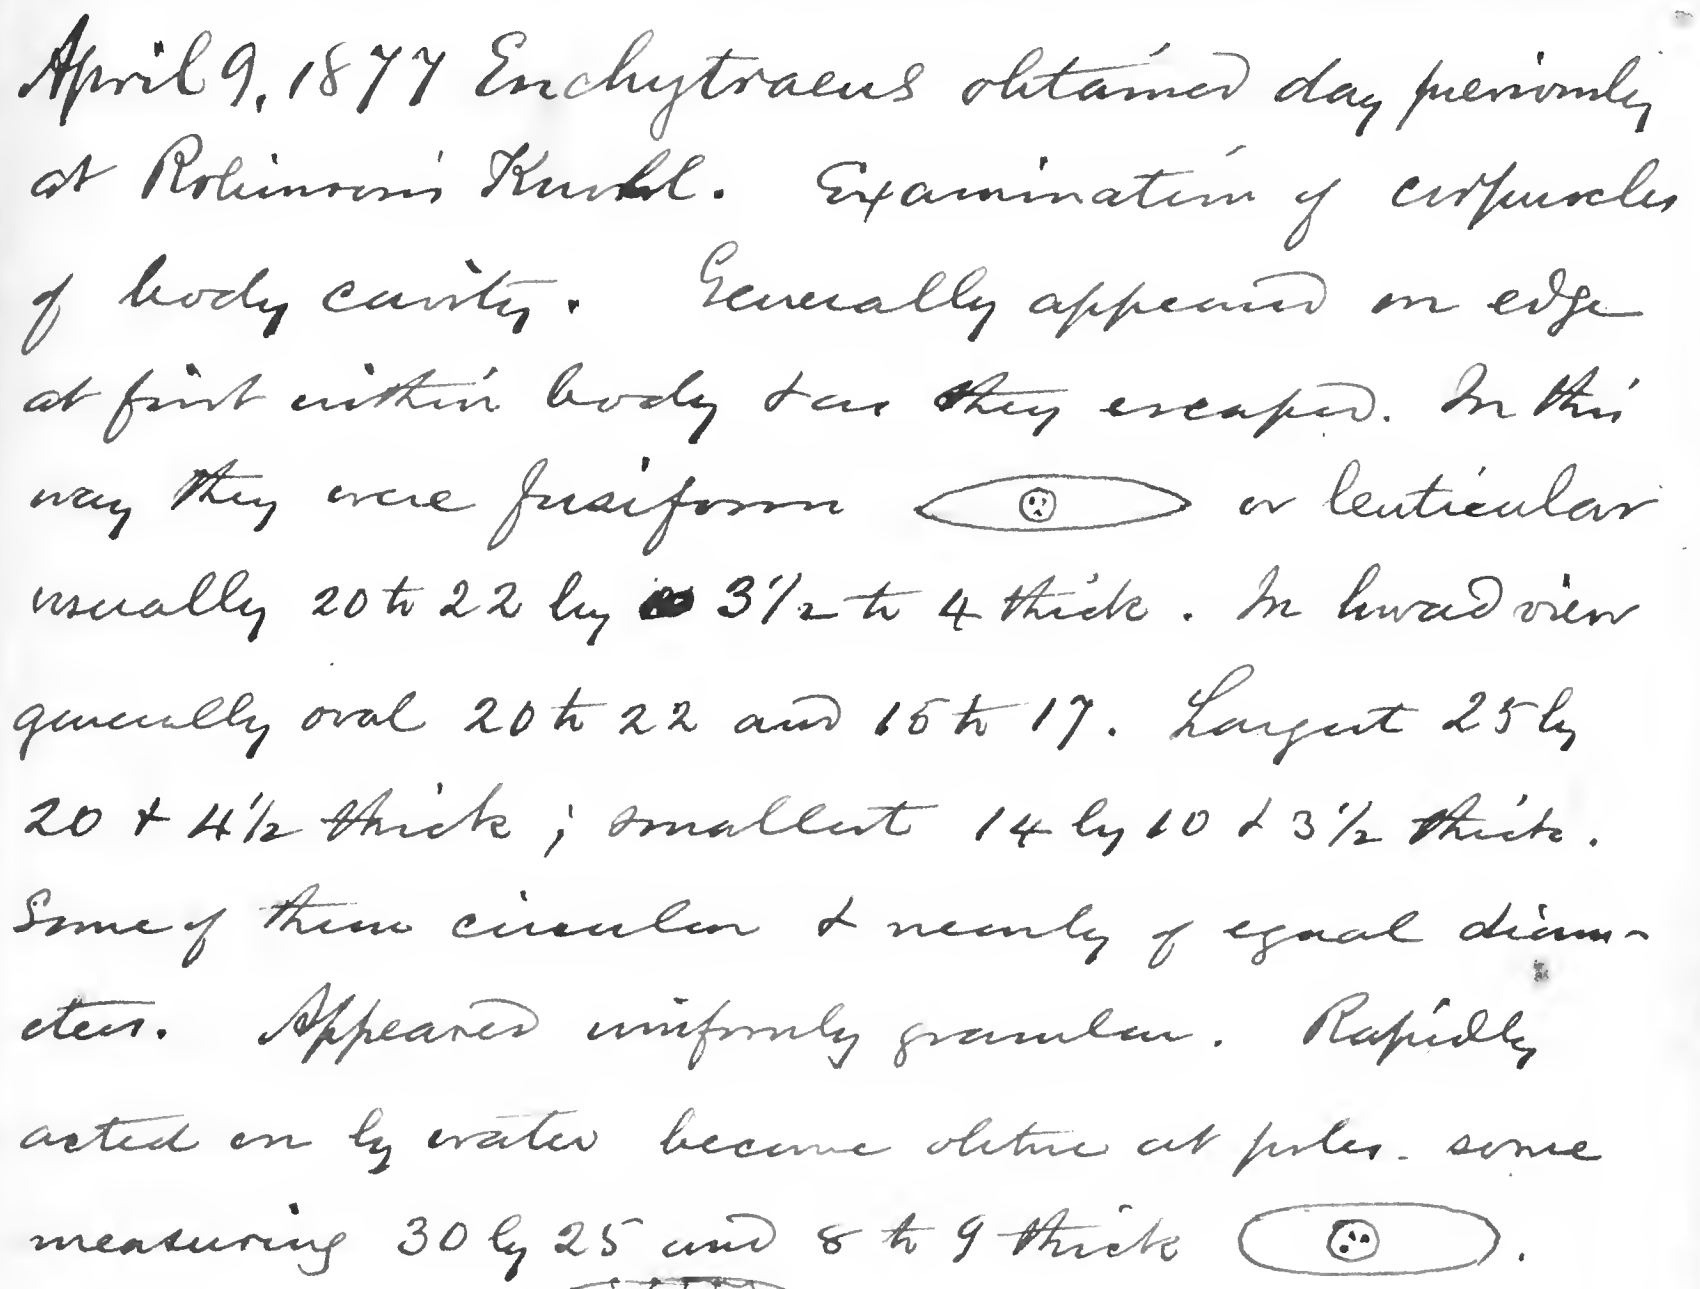 April 9, 1877 Enchytraeus obtained day previously
at Robinson's Knoll. Examination of corpuscles
of body cavity. Generally appeared on edge
at first within body & as they escaped. In this
way they were fusiform or lenticular
usually 20 to 22 by 3 1/2 to 4 thick. In broad view
generally oval 20 to 22 and 15 to 17. Largest 25 by
20 & 4 1/2 thick; smallest 14 by 10 & 3 1/2 thick.
Some of them circular & nearly of equal diam-
eters. Appeared uniformly granular. Rapidly
acted on by water become obtuse at poles. some
measuring 30 by 25 and 8 to 9 thick.